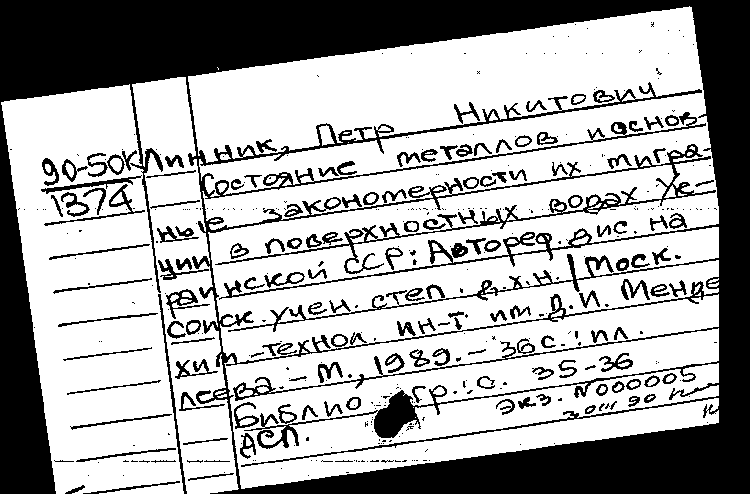 90-50К Линник, Петр Никитович
1374 Состояние металлов и основ-
ные закономерности их мигра-
ции в поверхностных водах Ук-
раинской ССР: Автореф. дис. на
соиск. учен. степ. д.х.н. / Моск.
хим.-технол. ин-т им. Д.И. Менде
леева. - М., 1989. - 36 с. : ил.
Библиогр.: с. 35-36
АСП. Экз. N000005